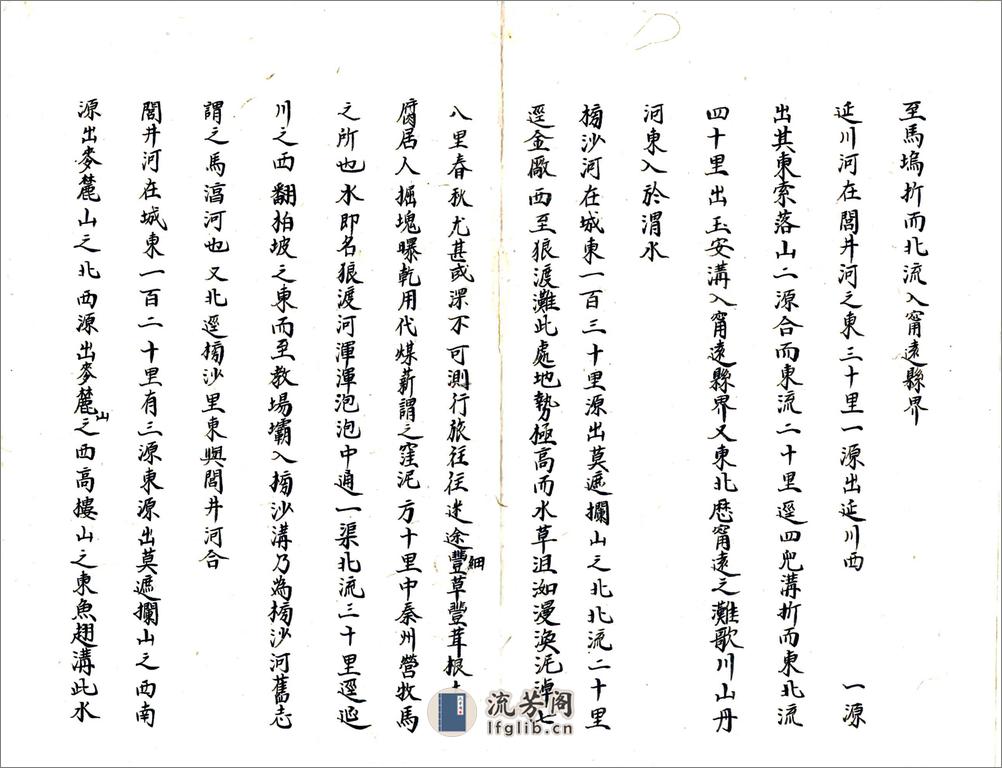 至馬塢折而北流入甯遠縣界
延川河在閭井河之東三十里一源出延川西 一源
出其東索落山二源合而東流二十里逕四兜溝折而東北流
四十里出玉安溝入甯遠縣界又東北歷甯遠之灘歌川山丹
河東入於渭水
榜沙河在城東一百三十里源出莫遮攔山之北北流二十里
逕金廠西至狼渡灘此處地勢極高而水草沮洳漫渙泥淖七
八里春秋尤甚或深不可測行旅往往迷途豐草豐茸根
細
腐居人掘塊曝乾用代煤薪謂之窪泥方十里中秦州營牧馬
之所也水即名狼渡河渾渾泡泡中通一渠北流三十里逕延
川之西翻拍坡之東而至教場壩入榜沙溝乃為榜沙河舊志
謂之馬滈河也又北逕榜沙里東與閭井河合
閭井河在城東一百二十里有三源東源出莫遮攔山之西南
源出麥麓山之北西源出麥麓之西高摟山之東魚翅溝此水
山
流芳阁
lfglib.cn